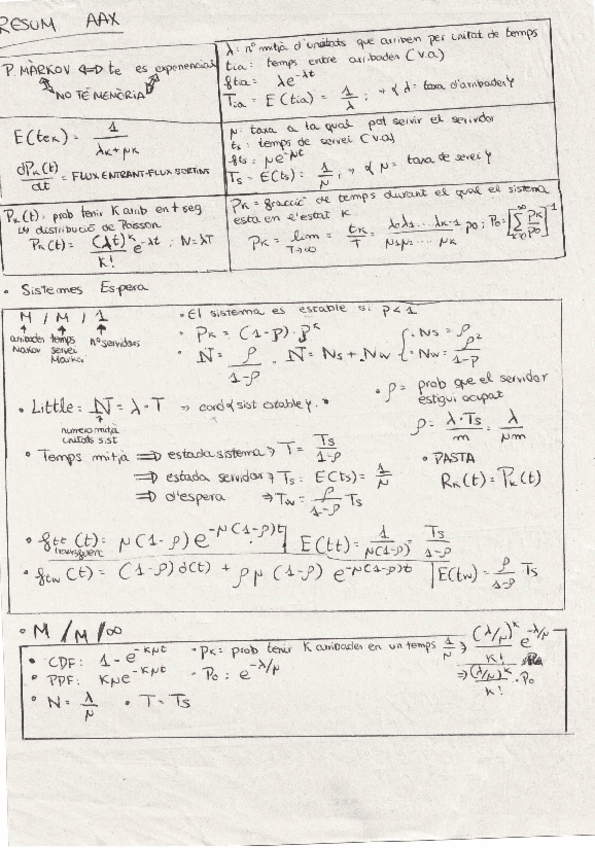 RESUM AAX
P. MÀRKOV ⟺ te es exponencial
NO TÉ MEMÒRIA
λ: nº mitjà d'unitats que arriben per unitat de temps
tia: temps entre arribades (v.a)
ftia: λe^-λt
Tia = E(tia) = 1/λ ; → λ = taxa d'arribades
E(tek) = 1/(λk+μk)
dPk(t)/dt = FLUX ENTRANT-FLUX SORTINT
μ: taxa a la qual pot servir el servidor
ts: temps de servei (v.a)
fts: μe^-μt
Ts = E(ts): 1/μ ; → μ = taxa de servei
Pk(t): prob tenir K arrib en t seg
↳ distribució de Poisson
Pk(t) = (λt)^k/K! e^-λt ; N=λT
Pk = fracció de temps durant el qual el sistema
esta en l'estat K.
Pk = lim T→∞ tk/T = λ0λ1...λk-1/μ1μ2...μk p0 ; P0 = [∑ k=0 ∞ pk/p0]^-1
• Sistemes Espera
M / M / 1
arribades Markov
temps servei Markov
Nº servidors
• El sistema es estable si ρ < 1
• Pk = (1-ρ) · ρ^k
• N = ρ/(1-ρ) . N = Ns + Nw { · Ns = ρ · Nw = ρ²/(1-ρ)
• ρ = prob que el servidor
estigui ocupat
ρ = λ·Ts/m = λ/μm
• Little: N = λ·T ⇒ sist estable
numero mitjà
unitats sist
• Temps mitjà ⇒ estada sistema → T = Ts/(1-ρ)
⇒ estada servidor → Ts: E(ts) = 1/μ
⇒ d'espera → Tw = ρ/(1-ρ) Ts
• PASTA
Rk(t) = Pk(t)
• ftt(t): μ(1-ρ)e^-μ(1-ρ)t | E(tt) = 1/μ(1-ρ) = Ts/(1-ρ)
• ftw(t) = (1-ρ)δ(t) + ρμ(1-ρ) e^-μ(1-ρ)t | E(tw) = ρ/(1-ρ) Ts
• M/M/∞
• CDF: 1-e^-kμt
• PDF: kμe^-kμt
• N = λ/μ • T = Ts
• Pk = prob tenir K arribades en un temps 1/μ → (λ/μ)^k/K! e^-λ/μ
⇒ (λ/μ)^k/k! · P0
• P0 = e^-λ/μ